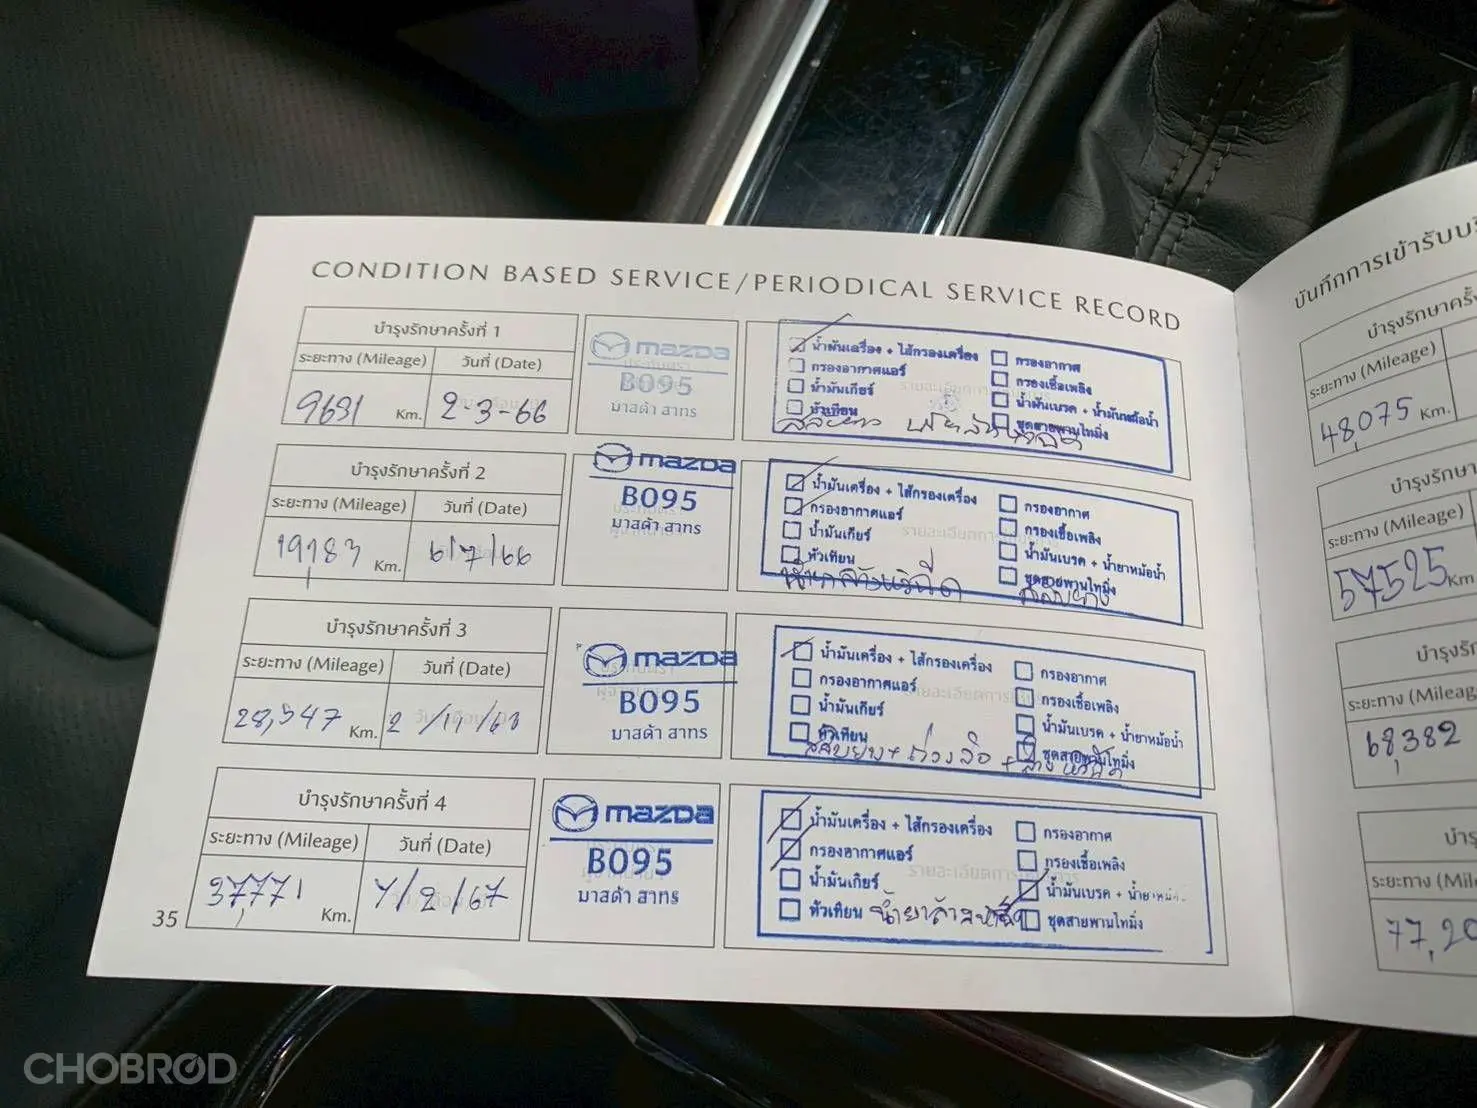 CONDITION BASED SERVICE/PERIODICAL SERVICE RECORD
บำรุงรักษาครั้งที่ 1
ระยะทาง (Mileage) วันที่ (Date)
9631 Km. 2-3-66
mazda
B095
มาสด้า สาทร
น้ำมันเครื่อง + ไส้กรองเครื่อง
กรองอากาศแอร์
น้ำมันเกียร์
หัวเทียน
กรองอากาศ
กรองเชื้อเพลิง
น้ำมันเบรค + น้ำยาหม้อน้ำ
ชุดสายพานไทมิ่ง
บำรุงรักษาครั้งที่ 2
ระยะทาง (Mileage) วันที่ (Date)
19,183 Km. 6/7/66
mazda
B095
มาสด้า สาทร
น้ำมันเครื่อง + ไส้กรองเครื่อง
กรองอากาศแอร์
น้ำมันเกียร์
หัวเทียน
กรองอากาศ
กรองเชื้อเพลิง
น้ำมันเบรค + น้ำยาหม้อน้ำ
ชุดสายพานไทมิ่ง
สลับยาง
บำรุงรักษาครั้งที่ 3
ระยะทาง (Mileage) วันที่ (Date)
28,347 Km. 2/11/66
mazda
B095
มาสด้า สาทร
น้ำมันเครื่อง + ไส้กรองเครื่อง
กรองอากาศแอร์
น้ำมันเกียร์
หัวเทียน
กรองอากาศ
กรองเชื้อเพลิง
น้ำมันเบรค + น้ำยาหม้อน้ำ
ชุดสายพานไทมิ่ง
สลับยาง + ถ่วงล้อ +
บำรุงรักษาครั้งที่ 4
ระยะทาง (Mileage) วันที่ (Date)
37,771 Km. 7/2/67
mazda
B095
มาสด้า สาทร
น้ำมันเครื่อง + ไส้กรองเครื่อง
กรองอากาศแอร์
น้ำมันเกียร์
หัวเทียน
กรองอากาศ
กรองเชื้อเพลิง
น้ำมันเบรค + น้ำยาหม้อน้ำ
ชุดสายพานไทมิ่ง
35
บันทึกการเข้ารับบริ
บำรุงรักษาครั้ง
ระยะทาง (Mileage)
48,075 Km.
บำรุงรักษา
ระยะทาง (Mileage)
57525 Km.
บำรุงรัก
ระยะทาง (Mileag
68,382
บำรุ
ระยะทาง (Mile
77,20
CHOBROD